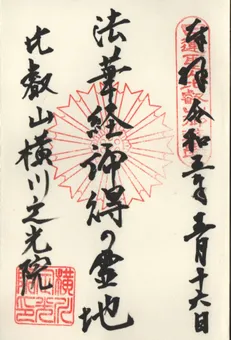 奉拝 令和三年 五月十六日
法華経御得の霊地
比叡山横川定光院